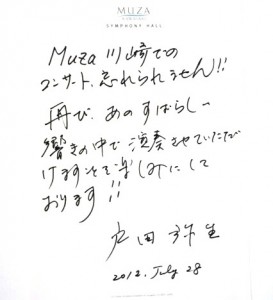 MUZA
SYMPHONY HALL
Muza 川崎での
コンサート、忘れられません!!
再び、あのすばらしい
響きの中で演奏させていただ
けますことを楽しみにして
おります!!
戸田弥生
2012. July 28